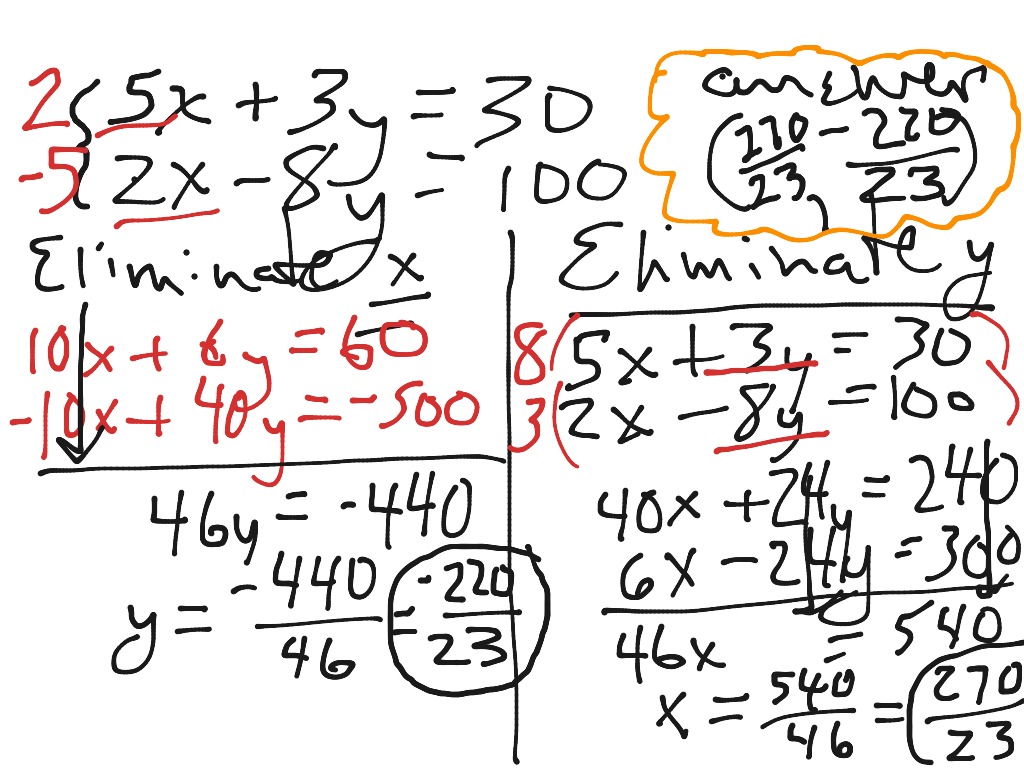 2 { 5x + 3y = 30
-5 { 2x - 8y = 100
answer
(270/23, -220/23)
Eliminate x
10x + 6y = 60
-10x + 40y = -500
46y = -440
y = -440/46 = -220/23
Eliminate y
8(5x + 3y = 30)
3(2x - 8y = 100)
40x + 24y = 240
6x - 24y = 300
46x = 540
x = 540/46 = 270/23